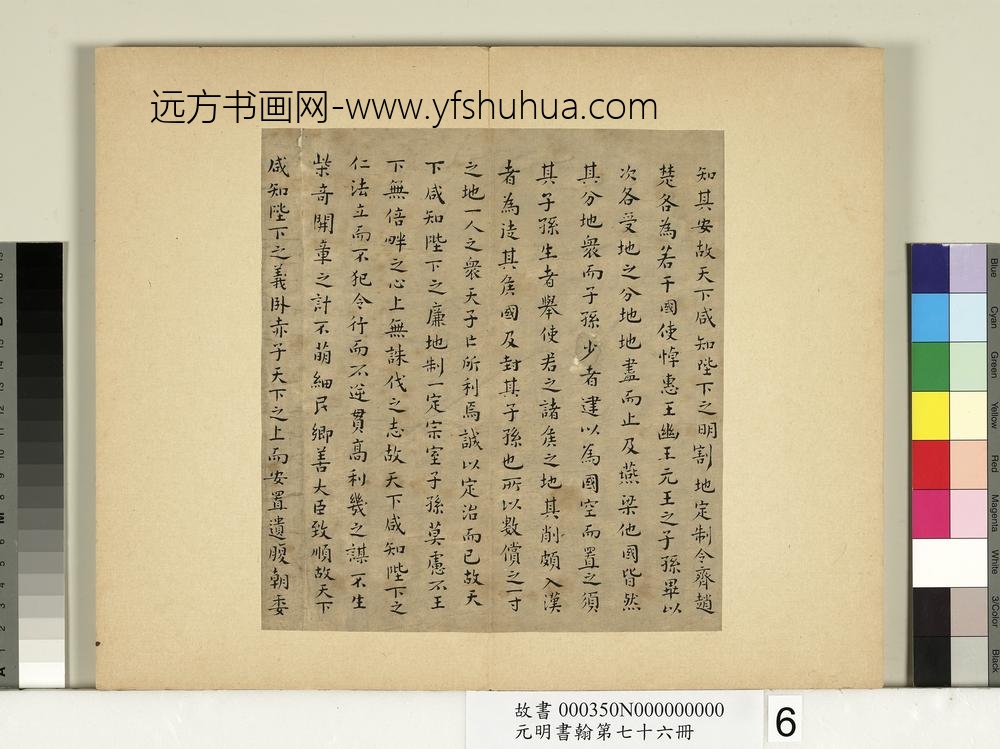 远方书画网-www.yfshuhua.com
知其安故天下咸知陛下之明割地定制令齊趙
楚各為若干國使悼惠王幽王元王之子孫畢以
次各受地之分地地盡而止及燕梁他國皆然
其分地衆而子孫少者建以為國空而置之須
其子孫生者舉使君之諸侯之地其削頗入漢
者為徙其侯國及封其子孫也所以數償之一寸
之地一人之衆天子亡所利焉誠以定治而已故天
下咸知陛下之廉地制一定宗室子孫莫慮不王
下無倍畔之心上無誅伐之志故天下咸知陛下之
仁法立而不犯令行而不逆貫高利幾之謀不生
柴奇開章之計不萌細民鄉善大臣致順故天下
咸知陛下之義卧赤子天下之上而安置遺腹朝委
Blue
Cyan
Green
Yellow
Red
Magenta
White
3/Color
Black
故書 000350N000000000
元明書翰第七十六冊
6